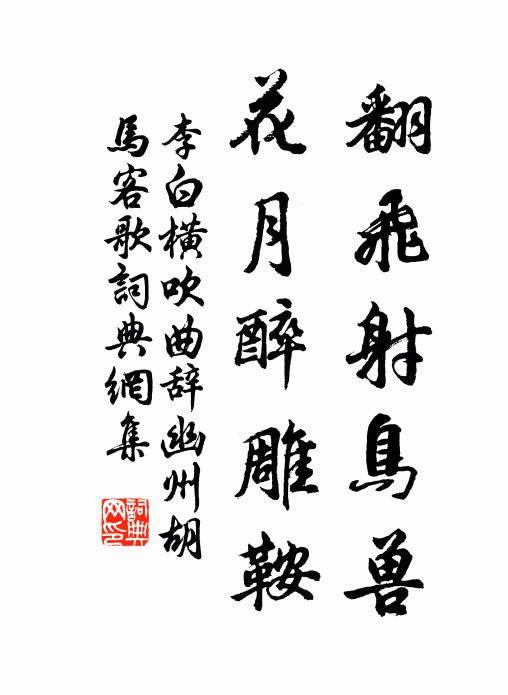 翻飛射鳥兽
花月醉雕鞍
李白橫吹曲辞幽州胡
馬客歌詞典網集
詞典网印